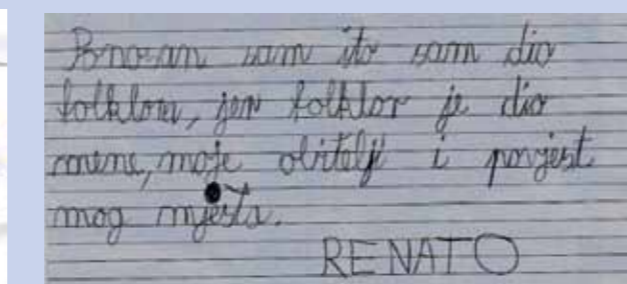 Ponosan sam što sam dio
folklora, jer folklor je dio
mene, moje obitelji i povjest
mog mjesta.
RENATO